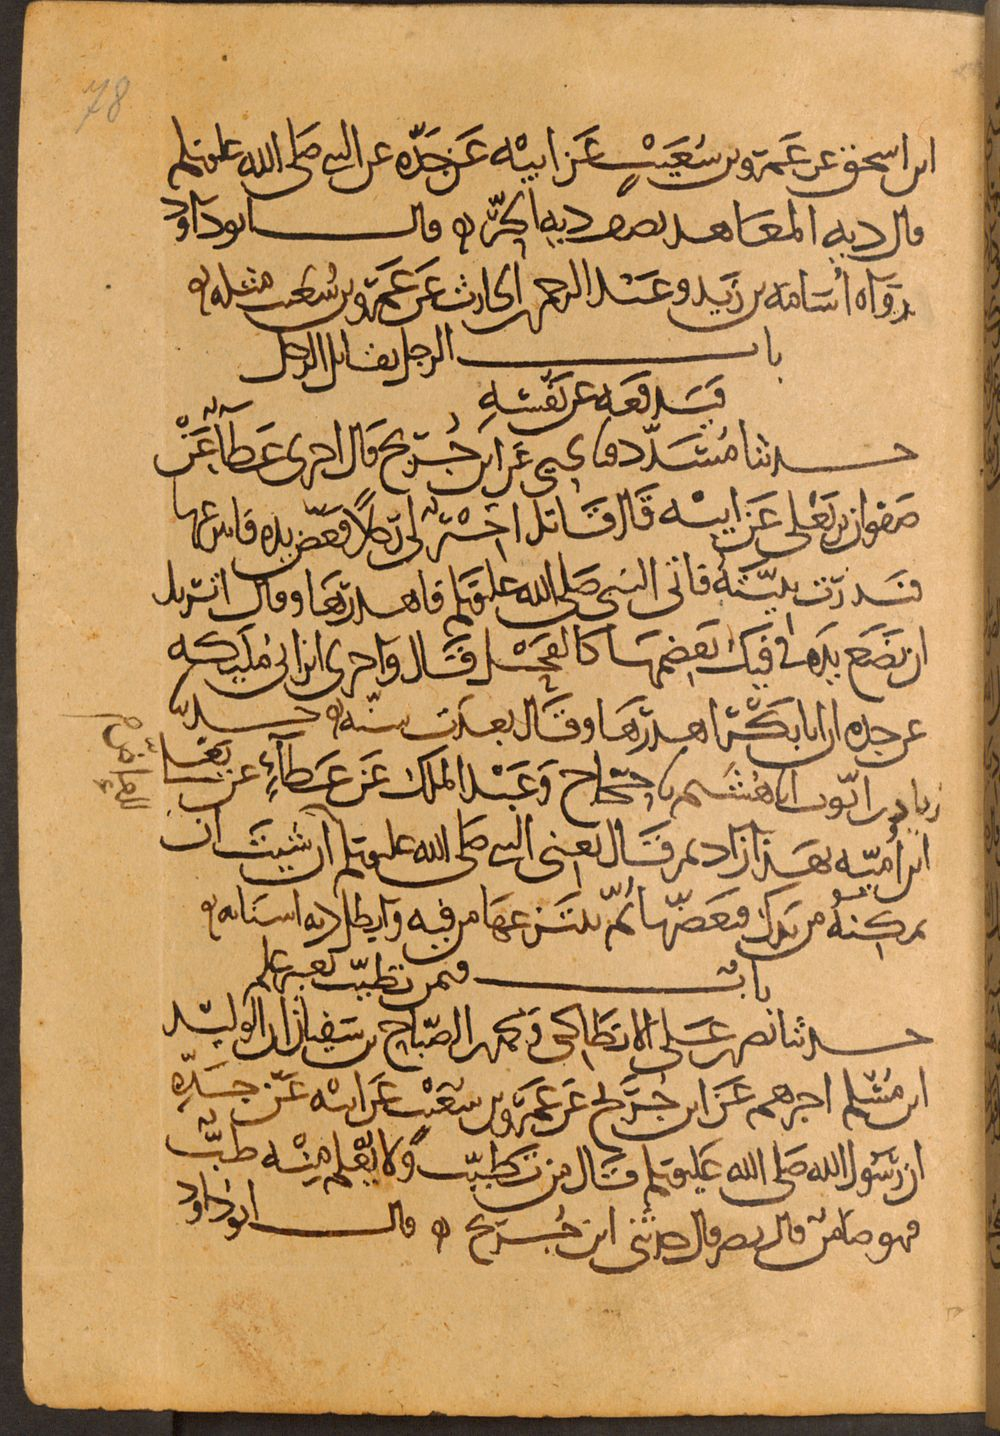 78
ابن اسحق عن عمرو بن شعيب عن ابيه عن جده عن النبي صلى الله عليه وسلم
قال دية المعاهد نصف دية الحر ه قال ابو داود
رواه اسامة بن زيد وعبد الرحمن بن الحارث عن عمرو بن شعيب مثله ه
باب الرجل يقاتل الرجل
فيدفعه عن نفسه
حدثنا مسدد نا يحيى عن ابن جريج قال اخبرني عطاء عن
صفوان بن يعلى عن ابيه قال قاتل اجير لي رجلا فعض يده فانتزعها
فندرت ثنيته فاتى النبي صلى الله عليه وسلم فاهدرها وقال اتريد
ان يضع يده في فيك تقضمها كالفحل قال واخبرني ابن ابي مليكة
عن جده ان ابا بكر اهدرها وقال بعدت سنه ه حدثنا
زياد بن ايوب انا هشيم نا حجاج وعبد الملك عن عطاء عن يعلى
ابن امية بهذا زاد ثم قال يعني النبي صلى الله عليه وسلم ان شيت ان
تمكنه من يدك فيعضها ثم تنتزعها من فيه وابطل دية اسنانه ه
باب فيمن تطبب بغير علم
حدثنا نصر بن علي الانطاكي ومحمد بن الصباح بن سفيان ان الوليد
ابن مسلم اخبرهم عن ابن جريج عن عمرو بن شعيب عن ابيه عن جده
ان رسول الله صلى الله عليه وسلم قال من تطبب ولا يعلم منه طب
فهو ضامن قال نصر قال حدثني ابن جريج ه قال ابو داود